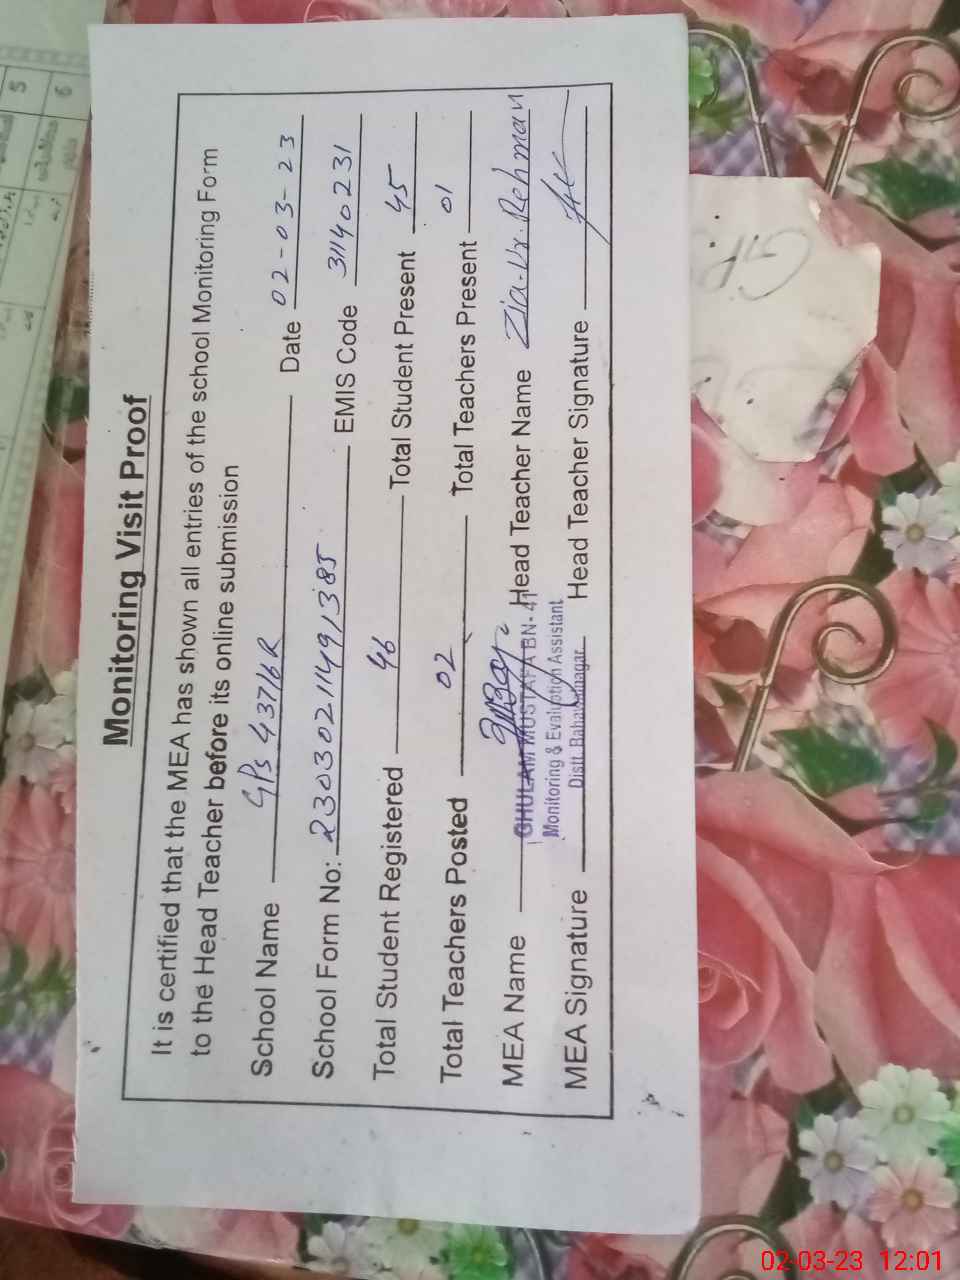 Monitoring Visit Proof
It is certified that the MEA has shown all entries of the school Monitoring Form
to the Head Teacher before its online submission
School Name GPs 43716R Date 02-03-23
School Form No: 23030211491385 EMIS Code 31140231
Total Student Registered 46 Total Student Present 45
Total Teachers Posted 02 Total Teachers Present 01
MEA Name GHULAM MUSTAFA BN-41 Head Teacher Name Zia-Ur-Rehman
Monitoring & Evaluation Assistant
Distt. Bahawalnagar
MEA Signature Head Teacher Signature
GPS
5
6
02-03-23 12:01